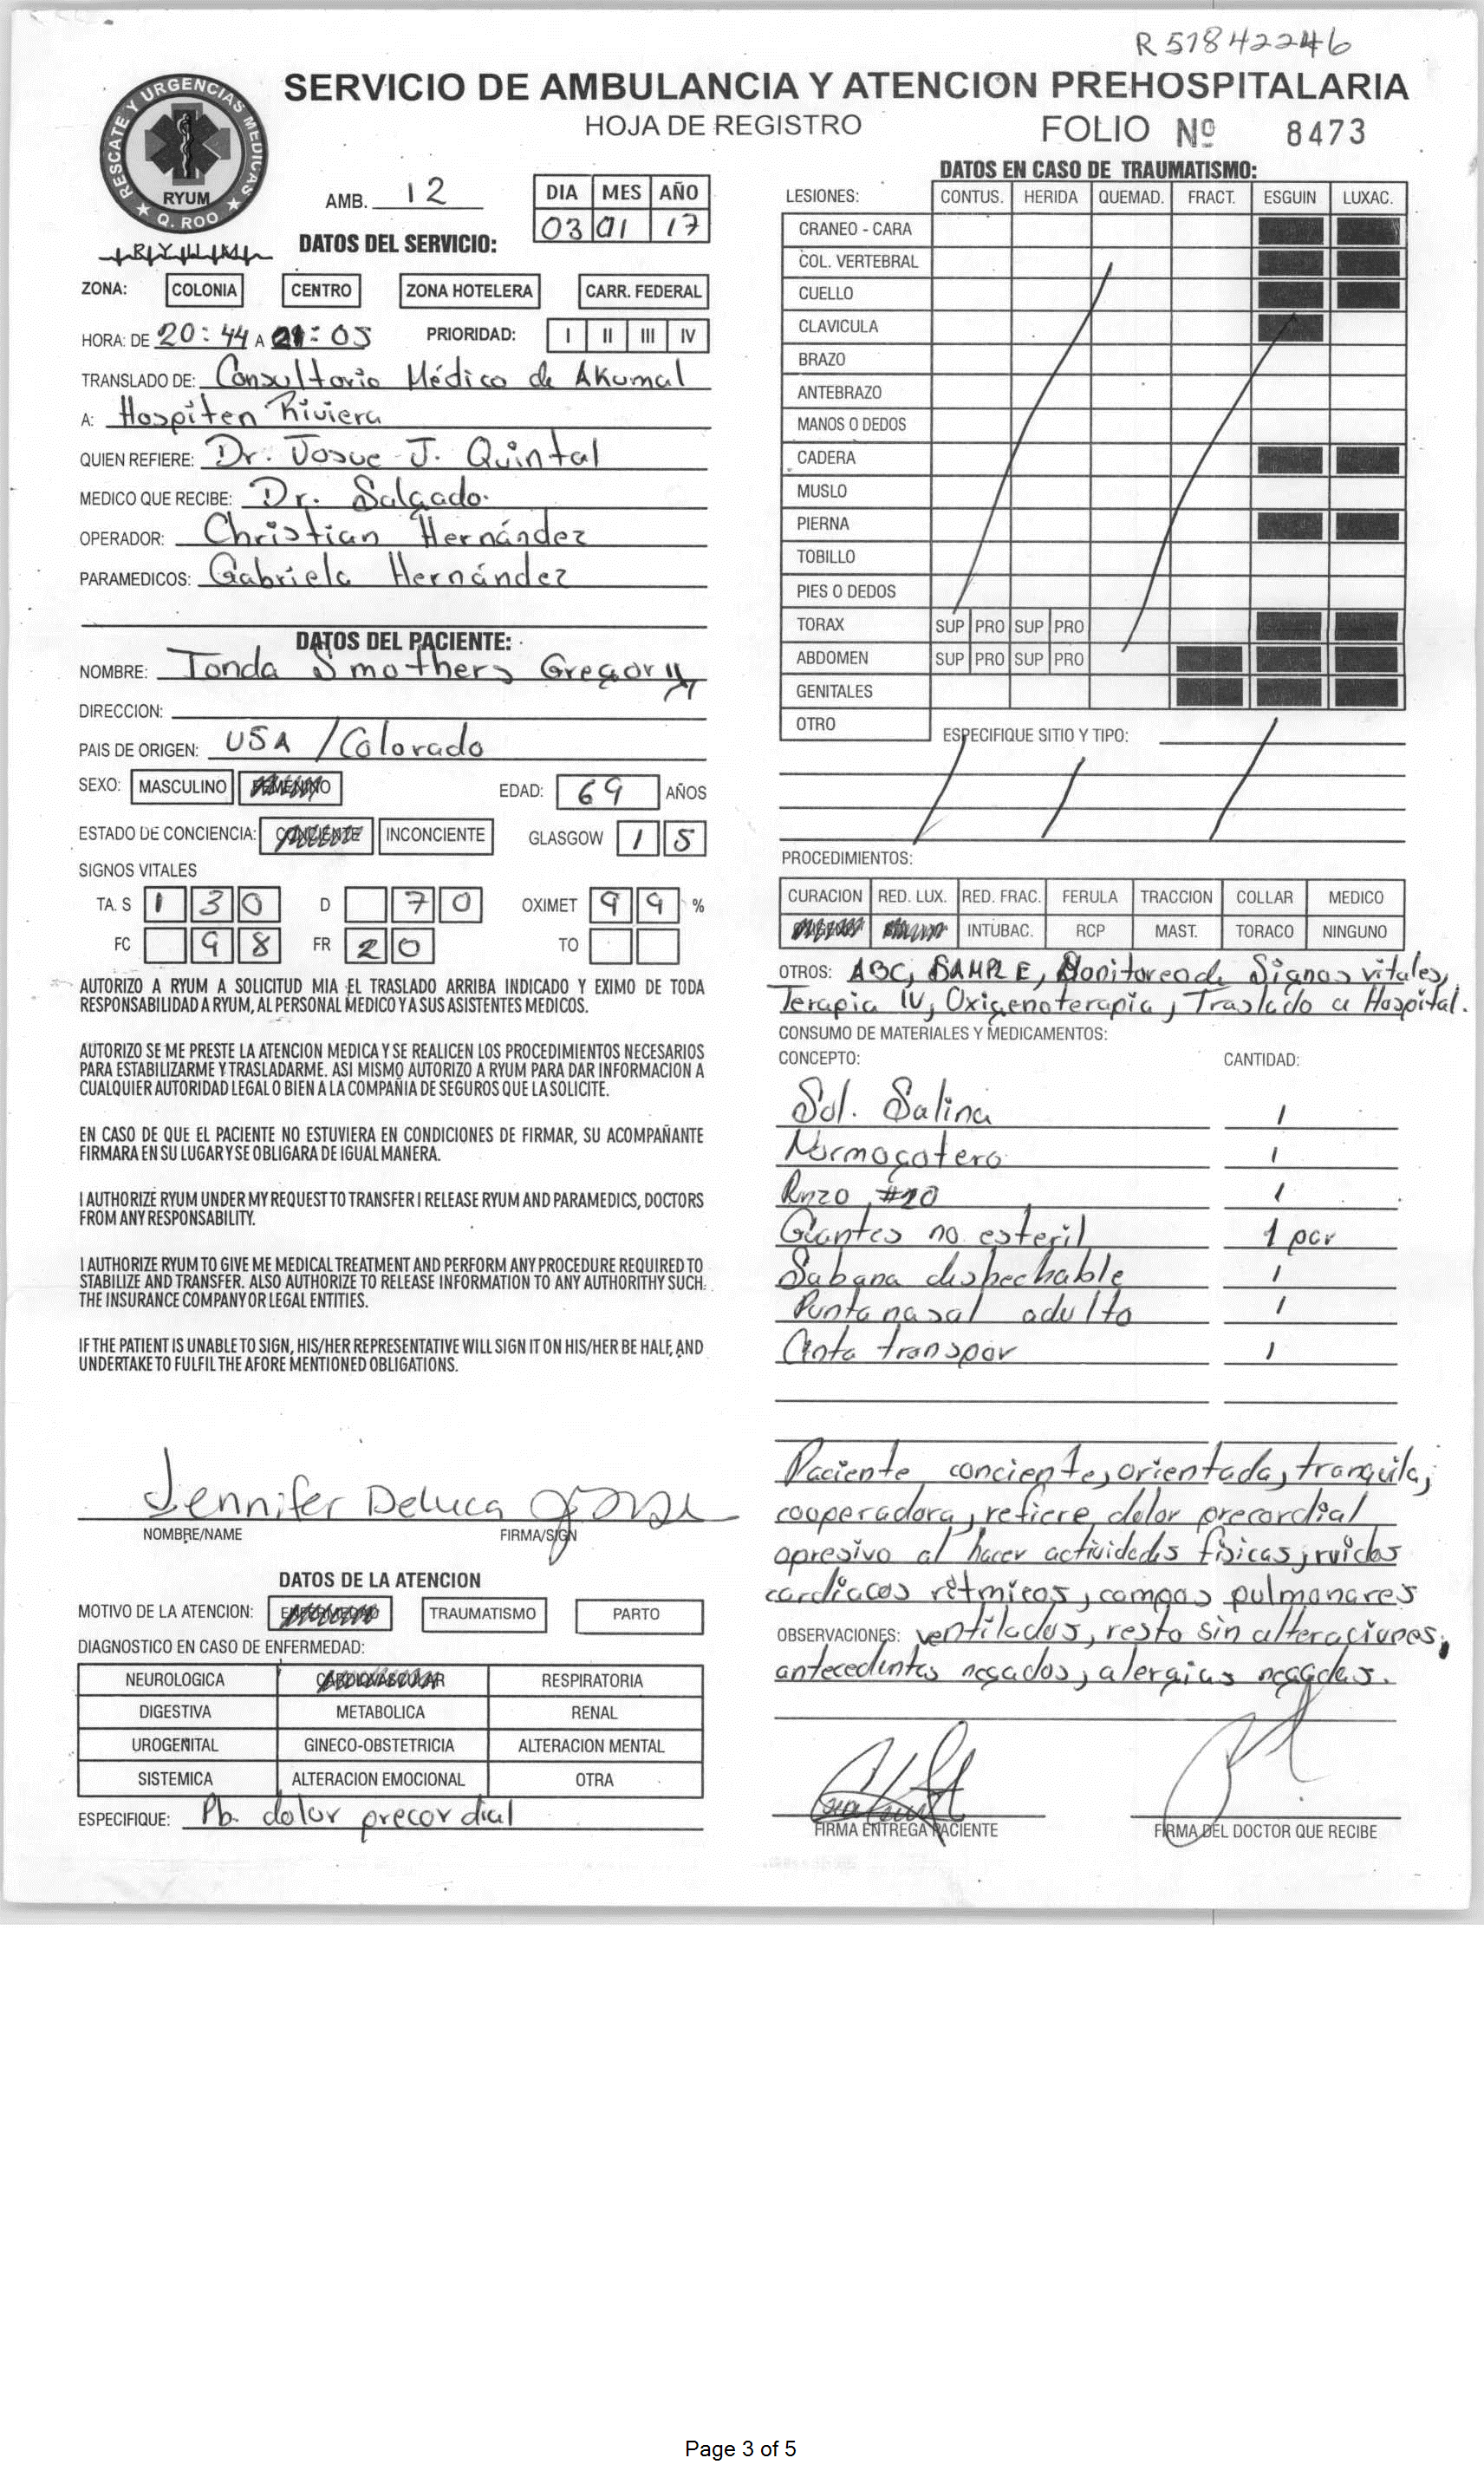 R51842246
SERVICIO DE AMBULANCIA Y ATENCION PREHOSPITALARIA
HOJA DE REGISTRO
FOLIO Nº 8473
RESCATE Y URGENCIAS MEDICAS
RYUM
Q. ROO
R.Y.U.M.
AMB. 12
DIA MES AÑO
03 01 17
DATOS DEL SERVICIO:
ZONA: COLONIA CENTRO ZONA HOTELERA CARR. FEDERAL
HORA: DE 20:44 A 21:05 PRIORIDAD: I II III IV
TRANSLADO DE: Consultorio Médico de Akumal
A: Hospiten Riviera
QUIEN REFIERE: Dr. Josue J. Quintal
MEDICO QUE RECIBE: Dr. Salgado.
OPERADOR: Christian Hernández
PARAMEDICOS: Gabriela Hernández
DATOS DEL PACIENTE:
NOMBRE: Tonda Smothers Gregory
DIRECCION:
PAIS DE ORIGEN: USA / Colorado
SEXO: MASCULINO FEMENINO EDAD: 69 AÑOS
ESTADO DE CONCIENCIA: CONCIENTE INCONCIENTE GLASGOW 15
SIGNOS VITALES
TA. S 130 D 70 OXIMET 99 %
FC 98 FR 20 TO
AUTORIZO A RYUM A SOLICITUD MIA EL TRASLADO ARRIBA INDICADO Y EXIMO DE TODA
RESPONSABILIDAD A RYUM, AL PERSONAL MEDICO Y A SUS ASISTENTES MEDICOS.
AUTORIZO SE ME PRESTE LA ATENCION MEDICA Y SE REALICEN LOS PROCEDIMIENTOS NECESARIOS
PARA ESTABILIZARME Y TRASLADARME. ASI MISMO AUTORIZO A RYUM PARA DAR INFORMACION A
CUALQUIER AUTORIDAD LEGAL O BIEN A LA COMPAÑIA DE SEGUROS QUE LA SOLICITE.
EN CASO DE QUE EL PACIENTE NO ESTUVIERA EN CONDICIONES DE FIRMAR, SU ACOMPAÑANTE
FIRMARA EN SU LUGAR Y SE OBLIGARA DE IGUAL MANERA.
I AUTHORIZE RYUM UNDER MY REQUEST TO TRANSFER I RELEASE RYUM AND PARAMEDICS, DOCTORS
FROM ANY RESPONSABILITY.
I AUTHORIZE RYUM TO GIVE ME MEDICAL TREATMENT AND PERFORM ANY PROCEDURE REQUIRED TO
STABILIZE AND TRANSFER. ALSO AUTHORIZE TO RELEASE INFORMATION TO ANY AUTHORITHY SUCH:
THE INSURANCE COMPANY OR LEGAL ENTITIES.
IF THE PATIENT IS UNABLE TO SIGN, HIS/HER REPRESENTATIVE WILL SIGN IT ON HIS/HER BE HALF, AND
UNDERTAKE TO FULFIL THE AFORE MENTIONED OBLIGATIONS.
Jennifer Deluca
NOMBRE/NAME FIRMA/SIGN
DATOS DE LA ATENCION
MOTIVO DE LA ATENCION: ENFERMEDAD TRAUMATISMO PARTO
DIAGNOSTICO EN CASO DE ENFERMEDAD:
NEUROLOGICA CARDIOVASCULAR RESPIRATORIA
DIGESTIVA METABOLICA RENAL
UROGENITAL GINECO-OBSTETRICIA ALTERACION MENTAL
SISTEMICA ALTERACION EMOCIONAL OTRA
ESPECIFIQUE: Pb. dolor precordial
DATOS EN CASO DE TRAUMATISMO:
LESIONES: CONTUS. HERIDA QUEMAD. FRACT. ESGUIN LUXAC.
CRANEO - CARA
COL. VERTEBRAL
CUELLO
CLAVICULA
BRAZO
ANTEBRAZO
MANOS O DEDOS
CADERA
MUSLO
PIERNA
TOBILLO
PIES O DEDOS
TORAX SUP PRO SUP PRO
ABDOMEN SUP PRO SUP PRO
GENITALES
OTRO ESPECIFIQUE SITIO Y TIPO:
PROCEDIMIENTOS:
CURACION RED. LUX. RED. FRAC. FERULA TRACCION COLLAR MEDICO
OXIGENO INTUBAC. RCP MAST. TORACO NINGUNO
OTROS: ABC, SAMPLE, Monitoreo de Signos vitales,
Terapia IV, Oxigenoterapia, Traslado a Hospital.
CONSUMO DE MATERIALES Y MEDICAMENTOS:
CONCEPTO: CANTIDAD:
Sol. Salina 1
Normogotero 1
Punzo #20 1
Guantes no esteril 1 par
Sabana deshechable 1
Punta nasal adulto 1
Cinta transpor 1
Paciente conciente, orientada, tranquila,
cooperadora, refiere dolor precordial
opresivo al hacer actividades físicas, ruidos
cardiacos rítmicos, campos pulmonares
OBSERVACIONES: ventilados, resto sin alteraciones,
antecedentes negados, alergias negadas.
FIRMA ENTREGA PACIENTE FIRMA DEL DOCTOR QUE RECIBE
Page 3 of 5